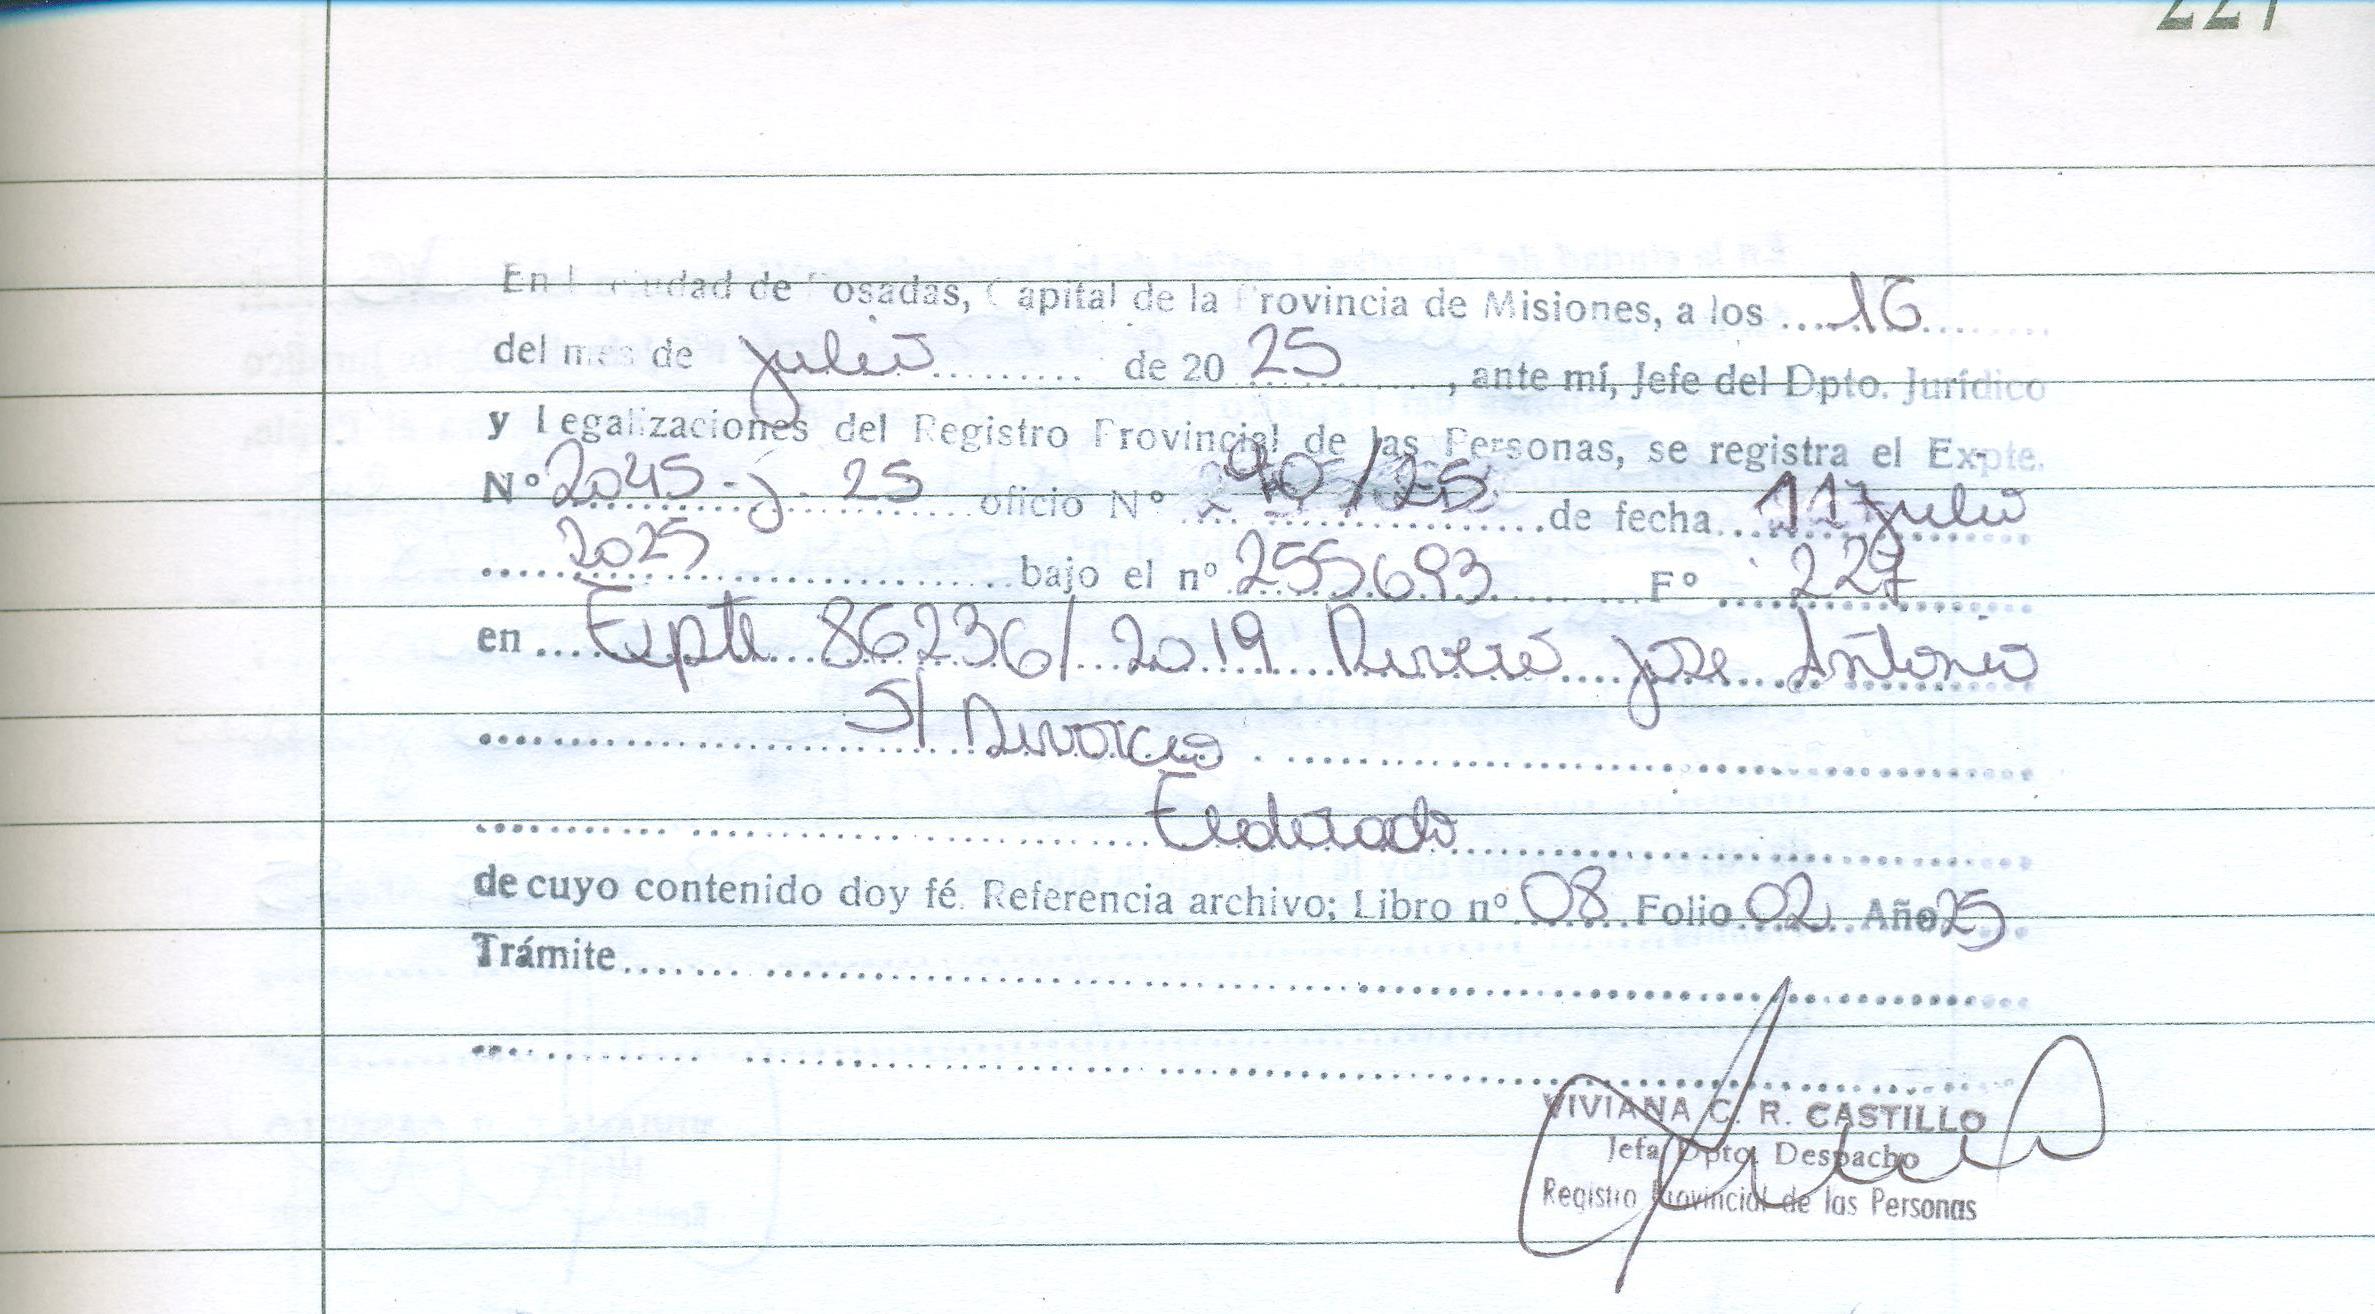 227
En la ciudad de Posadas, Capital de la Provincia de Misiones, a los 16
del mes de julio de 20 25, ante mí, Jefe del Dpto. Jurídico
y Legalizaciones del Registro Provincial de las Personas, se registra el Expte.
Nº 2045-j-25 oficio Nº 90/25 de fecha 11 julio
2025 bajo el nº 255693 Fº 227
en Expte 86236/2019 José Antonio
S/ Divorcio
Eldorado
de cuyo contenido doy fé. Referencia archivo; Libro nº 08 Folio 02 Año 25
Trámite
VIVIANA C. R. CASTILLO
Jefa Dpto. Despacho
Registro Provincial de las Personas